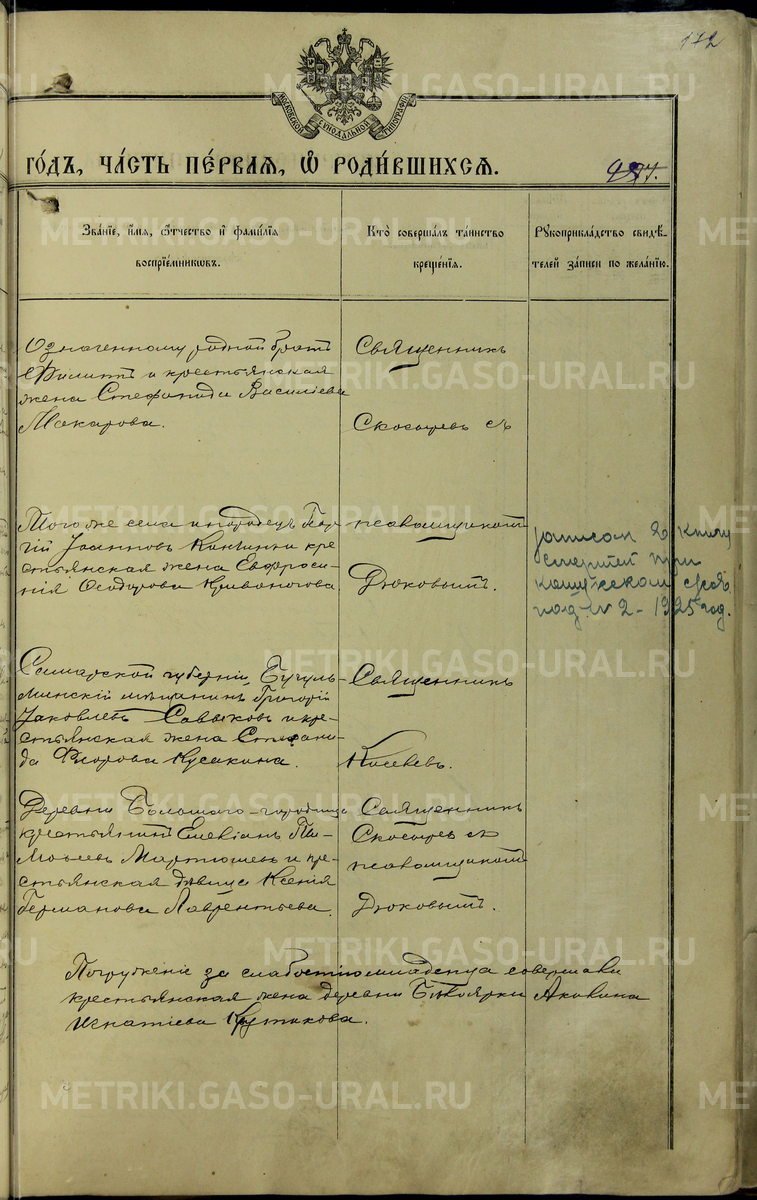 172
МОСКОВСКОЙ СѴНОДАЛЬНОЙ ТИПОГРАФІИ
ГО́ДЪ, ЧА́СТЬ ПЕ́РВАЯ, Ѡ҆ РОДИ́ВШИХСЯ.
Зва́нїе, и҆́мѧ, ѻ҆́тчество и҆ фами́лїѧ
воспрїе́мниковъ.
Кто̀ соверша́лъ та́инство
креще́нїѧ.
Рꙋкоприкла́дство свидѣ́-
телей за́писи по жела́нїю.
Означенному родной братъ
Филиппъ и крестьянская
жена Стефанида Василіева
Макарова.
Священникъ
Скосыревъ съ
Того же села инородецъ Геор-
гій Іоанновъ и кре-
стьянская жена Евфроси-
нія Ѳеодорова Кривоногова.
псаломщикомъ
Дюковымъ.
записан в книгу
при
под № 2 - 1925 год.
Самарской губерніи, Бугуль-
минскій мѣщанинъ Григорій
Іаковлевъ Савыковъ и кре-
стьянская жена Стефани-
да Флорова Кусакина.
Священникъ
Киселевъ.
Деревни Большого-городища
крестьянинъ Емеліанъ Ти-
моѳеевъ Мартюшевъ и кре-
стьянская дѣвица Ксенія
Германова Лаврентьева.
Священникъ
Скосыревъ съ
псаломщикомъ
Дюковымъ.
Погруженіе за слабостію младенца совершали
крестьянская жена деревни Акилина
Игнатіева Крутикова.
METRIKI.GASO-URAL.RU